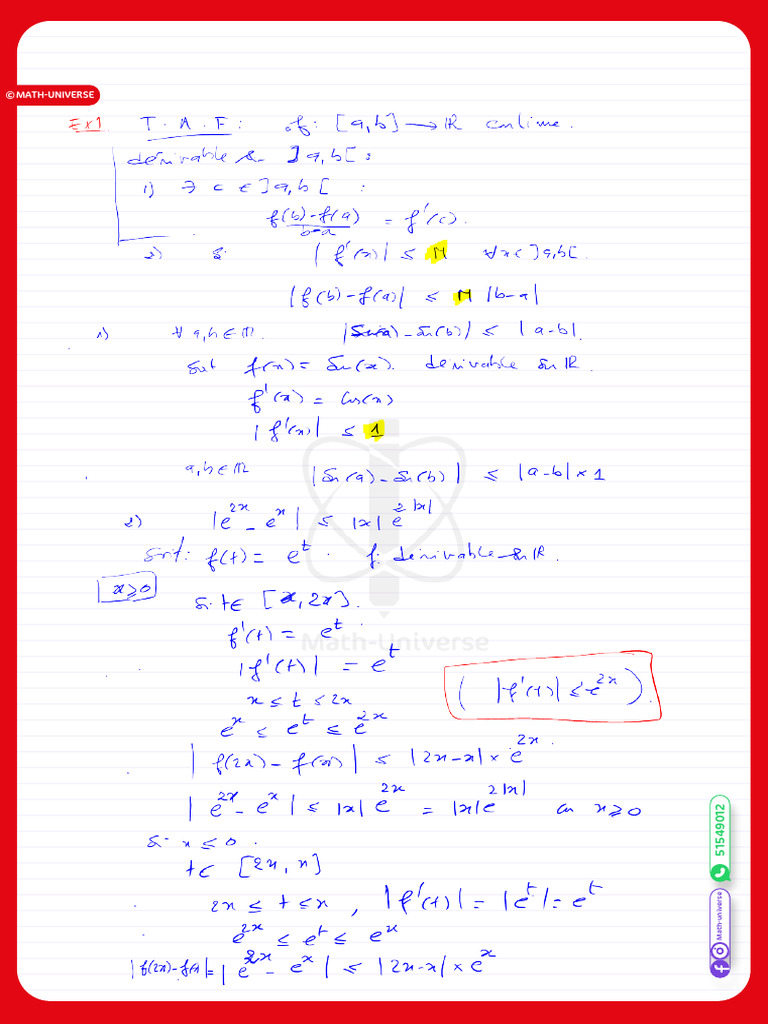 ©MATH-UNIVERSE
Ex1 T.A.F: f: [a,b] → IR continue.
dérivable sur ]a,b[ :
1) ∃ c ∈ ]a,b[ :
f(b)-f(a) / b-a = f'(c).
2) si |f'(x)| ≤ M ∀x∈]a,b[.
|f(b)-f(a)| ≤ M |b-a|
1) ∀ a,b∈IR. |Sin(a)-Sin(b)| ≤ |a-b|.
Soit f(x) = Sin(x). dérivable sur IR.
f'(x) = Cos(x)
|f'(x)| ≤ 1
a,b∈IR |Sin(a)-Sin(b)| ≤ |a-b| × 1
2) |e^{2x} - e^x| ≤ |x| e^{2|x|}
Soit: f(t) = e^t. f: dérivable sur IR.
x≥0
Si t∈ [x,2x].
f'(t) = e^t.
|f'(t)| = e^t
x ≤ t ≤ 2x
(|f'(t)| ≤ e^{2x}).
e^x ≤ e^t ≤ e^{2x}
|f(2x)-f(x)| ≤ |2x-x| × e^{2x}.
|e^{2x} - e^x| ≤ |x| e^{2x} = |x| e^{2|x|} car x≥0
Si x ≤ 0.
t∈ [2x, x]
2x ≤ t ≤ x, |f'(t)| = |e^t| = e^t
e^{2x} ≤ e^t ≤ e^x
|f(2x)-f(x)| = |e^{2x} - e^x| ≤ |2x-x| × e^x
Math-Universe
51549012
Math-universe